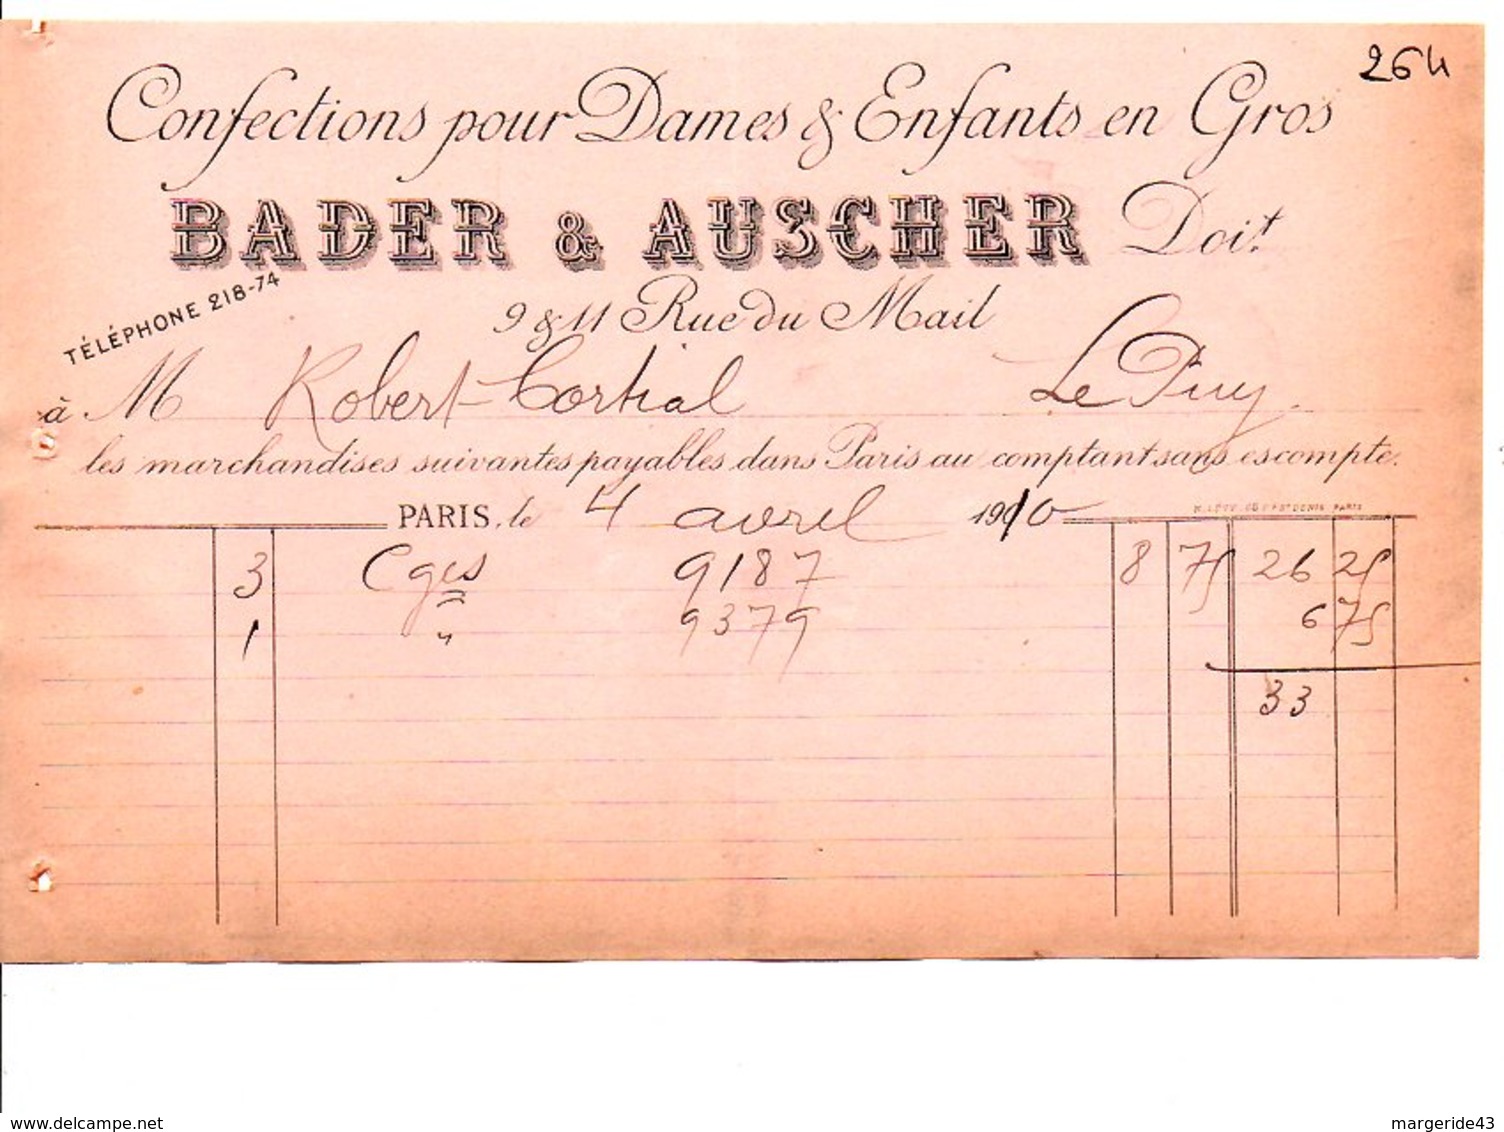 264
Confections pour Dames & Enfants en Gros
BADER & AUSCHER Doit
TÉLÉPHONE 218-74
9 & 11 Rue du Mail
à M Robert-Cortial Le Puy
les marchandises suivantes payables dans Paris au comptant sans escompte.
PARIS, le 4 avril 1910
3 Cges 9187 8 75 26 25
1 " 9379 6 75
33
www.delcampe.net
margeride43